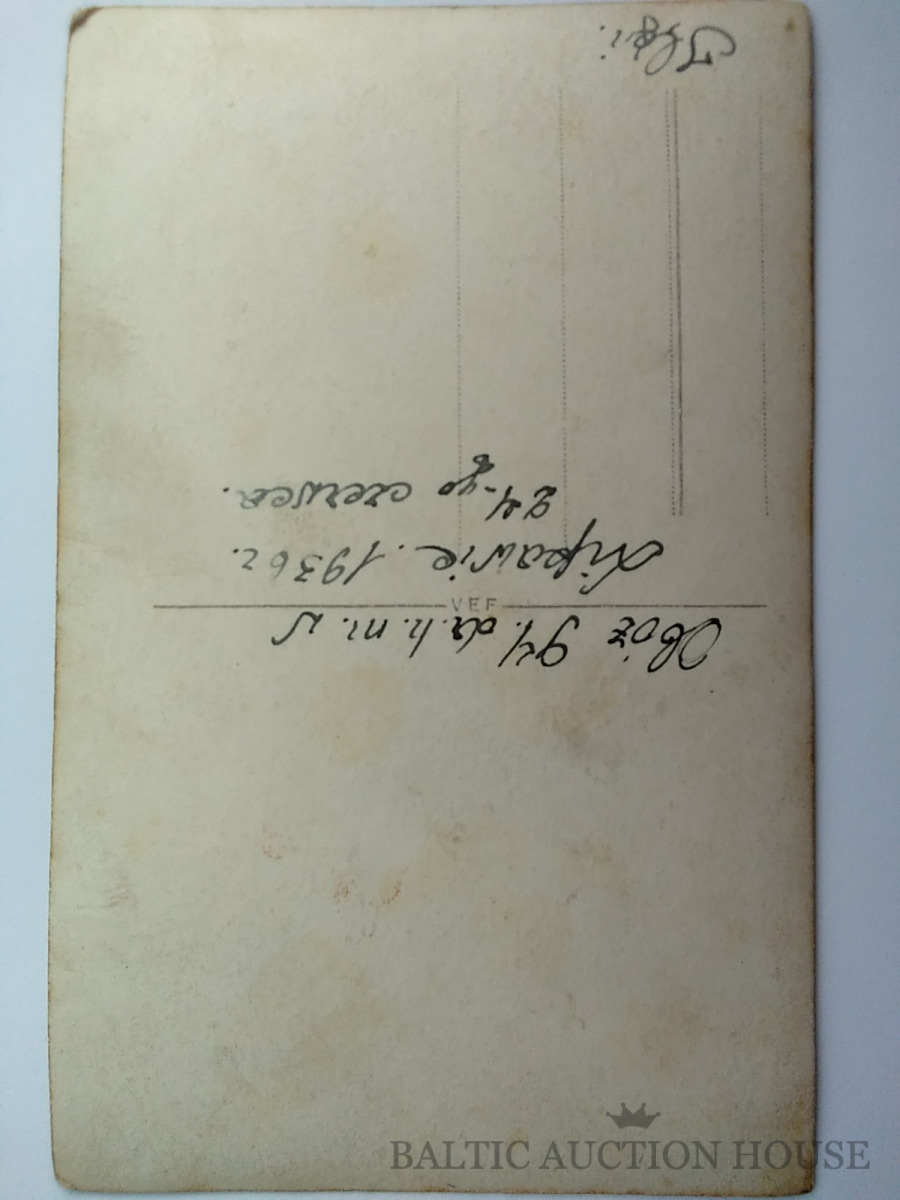 Obóz 94. dr.h.m. w
VEF
Lipawie. 1936 r.
24-go czerwca.
BALTIC AUCTION HOUSE